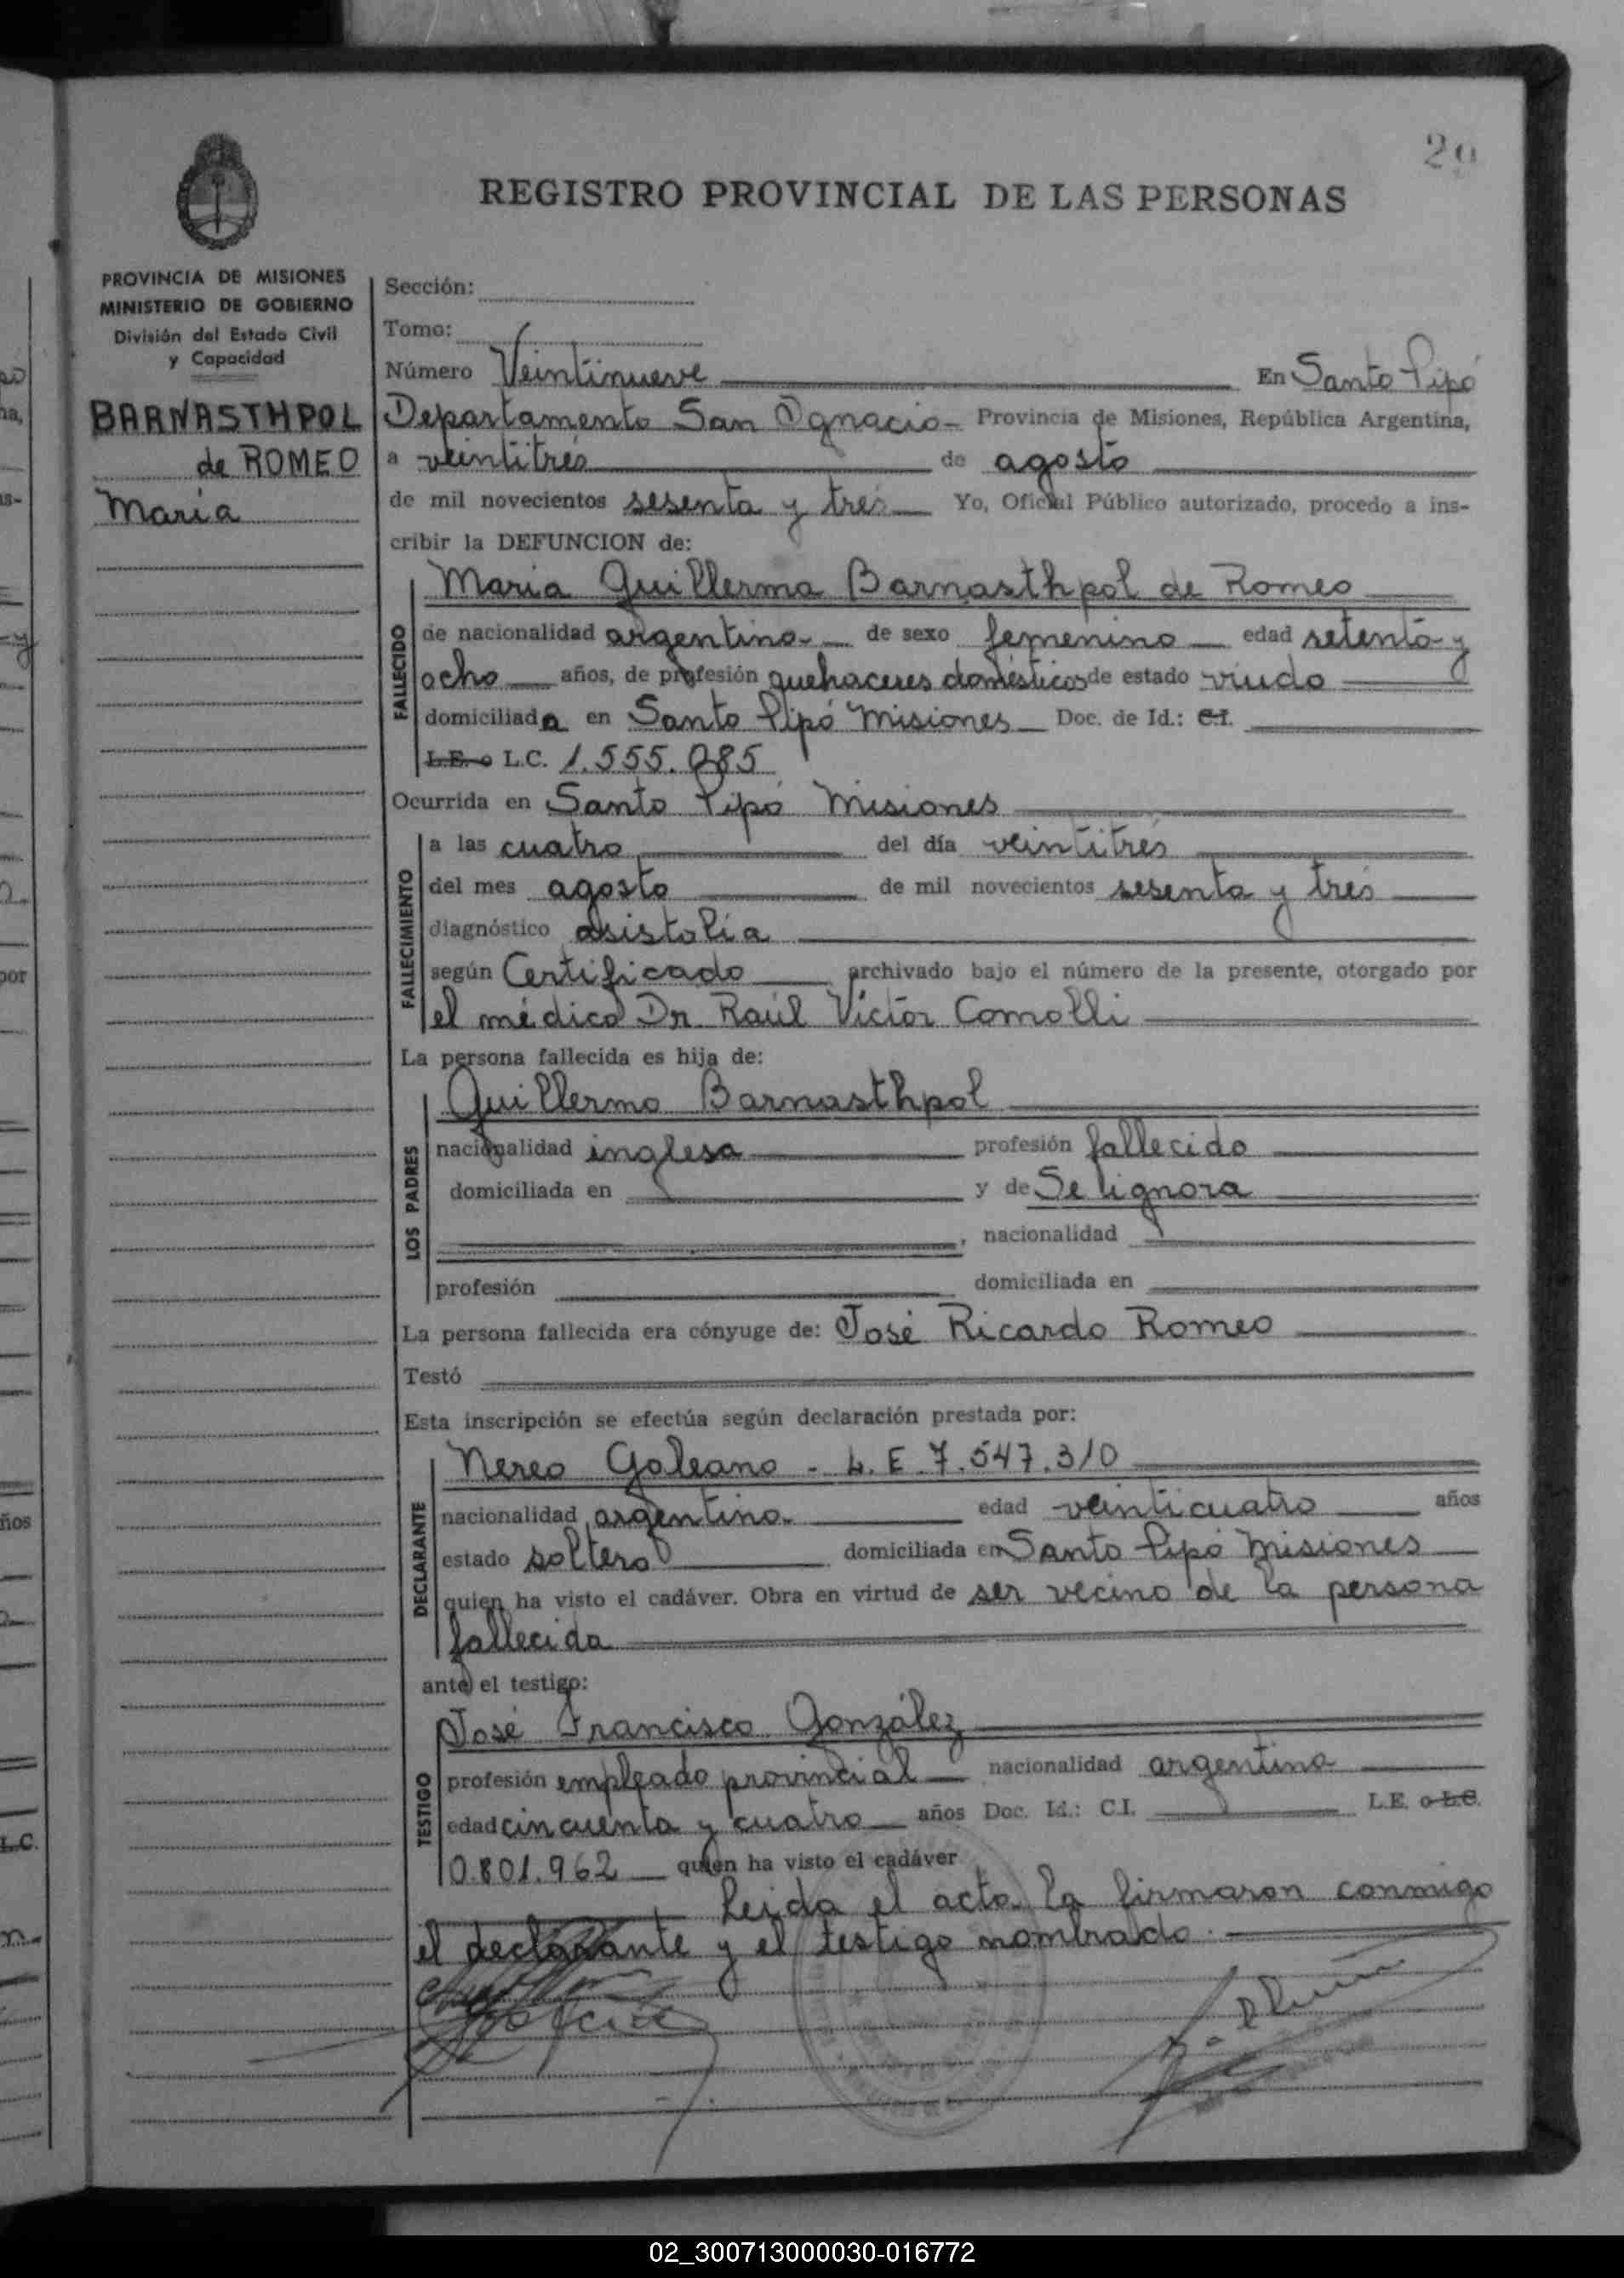 29
REGISTRO PROVINCIAL DE LAS PERSONAS
PROVINCIA DE MISIONES
MINISTERIO DE GOBIERNO
División del Estado Civil
y Capacidad
BARNASTHPOL
de ROMEO
María
Sección:
Tomo:
Número Veintinueve En Santo Pipó
Departamento San Ignacio - Provincia de Misiones, República Argentina,
a veintitrés de agosto
de mil novecientos sesenta y tres Yo, Oficial Público autorizado, procedo a ins-
cribir la DEFUNCION de:
FALLECIDO
Maria Guillerma Barnasthpol de Romeo
de nacionalidad argentina de sexo femenino edad setenta y
ocho años, de profesión quehaceres domésticos de estado viuda
domiciliada en Santo Pipó Misiones Doc. de Id.: C.I.
L.E. o L.C. 1.555.085
Ocurrida en Santo Pipó Misiones
FALLECIMIENTO
a las cuatro del día veintitrés
del mes agosto de mil novecientos sesenta y tres
diagnóstico asistolía
según Certificado archivado bajo el número de la presente, otorgado por
el médico Dr. Raúl Víctor Comolli
La persona fallecida es hija de:
LOS PADRES
Guillermo Barnasthpol
nacionalidad inglesa profesión fallecido
domiciliada en y de Se ignora
, nacionalidad
profesión domiciliada en
La persona fallecida era cónyuge de: José Ricardo Romeo
Testó
Esta inscripción se efectúa según declaración prestada por:
DECLARANTE
Nereo Galeano - L. E. 7.547.310
nacionalidad argentina edad veinticuatro años
estado soltero domiciliada en Santo Pipó Misiones
quien ha visto el cadáver. Obra en virtud de ser vecino de la persona
fallecida
ante el testigo:
TESTIGO
José Francisco González
profesión empleado provincial nacionalidad argentina
edad cincuenta y cuatro años Doc. Id.: C.I. L.E. o L.C.
0.801.962 quien ha visto el cadáver
Leida el acta la firmaron conmigo
el declarante y el testigo nombrado.
02_300713000030-016772